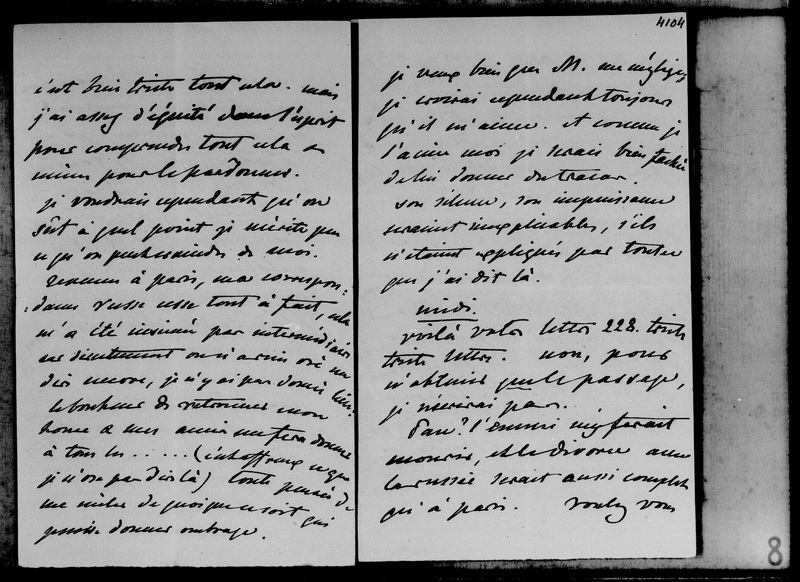 c'est bien triste tout cela. mais
j'ai assez d'équité dans l'esprit
pour comprendre tout cela et
mieux pour le pardonner.
je voudrais cependant qu'on
sût à quel point je mérite peu
ce qu'on peut craindre de moi.
revenu à paris, ma correspon=
=dance russe cesse tout à fait, cela
m'a été insinué par intermédiaires
car directement on n'a rien osé me
dire encore, je n'y ai pas donné lieu.
le bonheur de retourner mon
à mes amis me fera
à tous les ..... (c'est affreux ce que
je n'ose pas dire là) toute pensée de
me mêler de quoi que ce soit qui
puisse donner ombrage.
4104
je veux bien que M. me néglige,
je croirai cependant toujours
qu'il m'aime. Et comme je
l'aime moi je serais bien faché
de lui donner du tracas.
son silence, son impuissance
seraient inexplicables, s'ils
n'étaient expliqués par tout ce
que j'ai dit là.
midi.
voilà votre lettre 228. triste
triste lettre. non, pour
n'obtenir que le passage,
je n'écrirai pas.
Pau? l'ennui m'y ferait
mourir, et le divorce avec
la russie serait aussi complet
qu'à paris. voulez vous
8